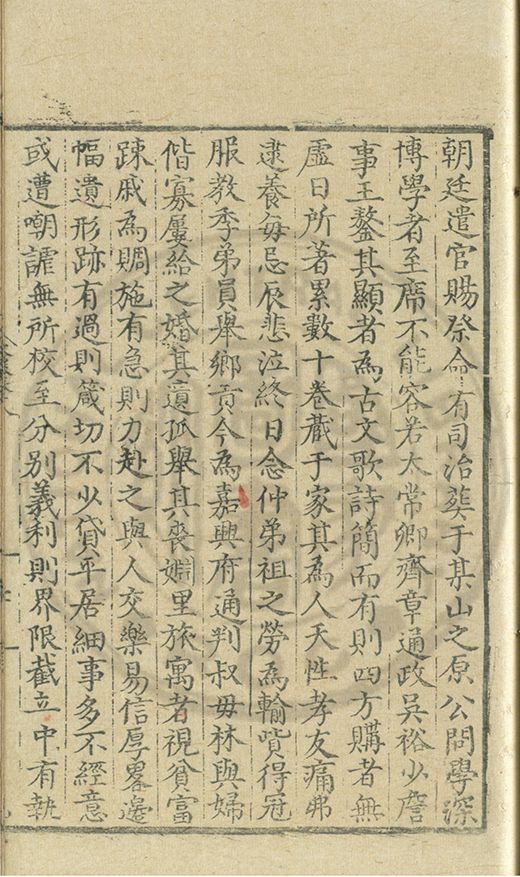 朝廷遣官賜祭命有司治葬于某山之原公問學深
博學者至席不能容若太常卿齊章通政吳裕少詹
事王鏊其顯者為古文歌詩簡而有則四方購者無
虛日所著累數十卷藏于家其為人天性孝友痛弗
逮養每忌辰悲泣終日念仲弟祖之勞為輸貲得冠
服教季弟員舉鄉貢今為嘉興府通判叔毋林與婦
偕寡屢給之婚其遺孤舉其喪婣里旅寓者視貧富
踈戚為賙施有急則力赴之與人交樂易信厚畧邊
幅遺形跡有過則箴切不少貸平居細事多不經意
或遭嘲謔無所校至分别義利則界限截立中有執